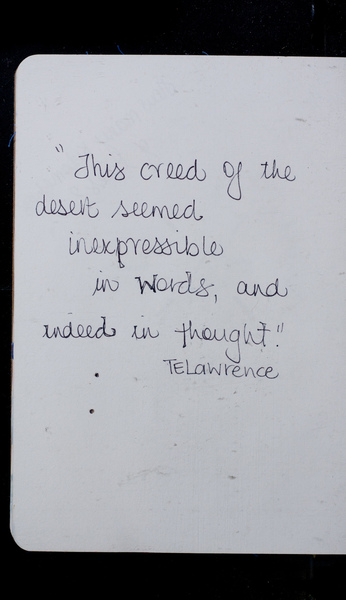 "This creed of the
desert seemed
inexpressible
in words, and
indeed in thought."
TELawrence